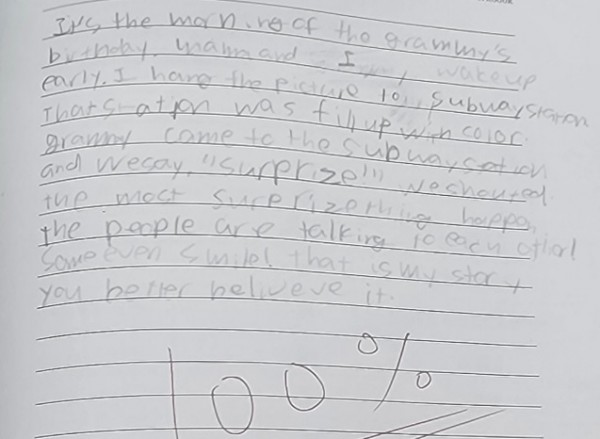 It's the morning of the grammy's
birthday. mam and I wake up
early. I hang the picture to subway station
That station was fill up with color.
grammy come to the subway station
and we say, "surprize!" we shouted.
the most surprize thing happen
the people are talking to each other
Some even smile! that is my story
you better beliveve it.
100%